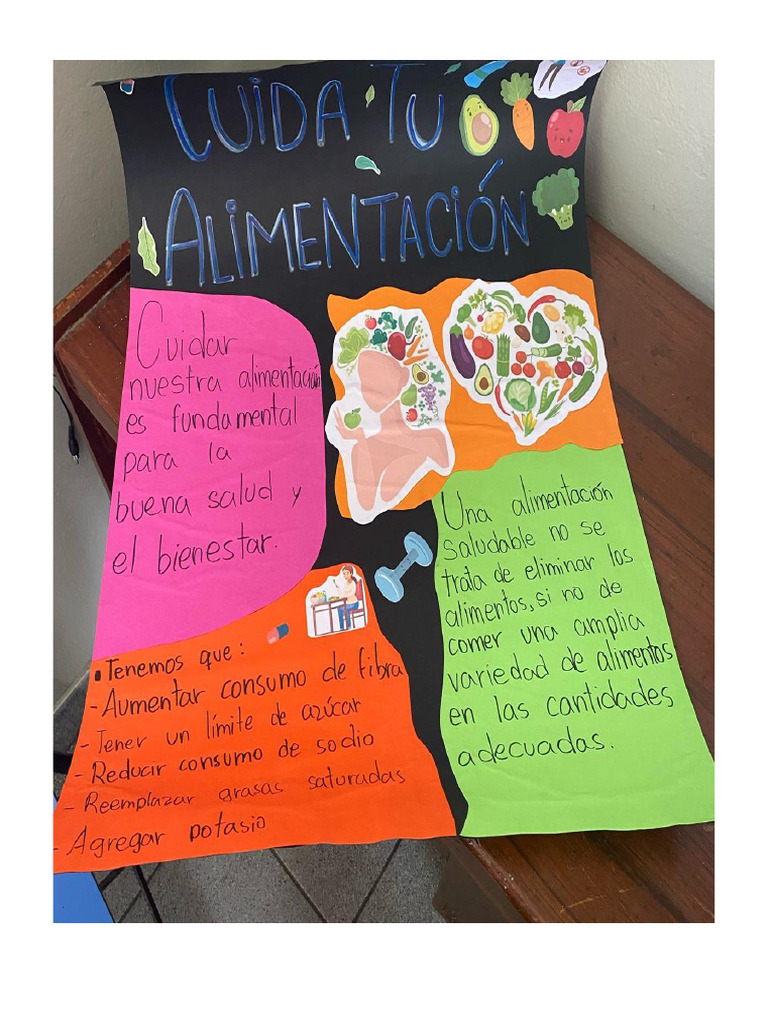 CUIDA TU
ALIMENTACIÓN
Cuidar
nuestra alimentación
es fundamental
para la
buena salud y
el bienestar.
Una alimentación
saludable no se
trata de eliminar los
alimentos, si no de
comer una amplia
variedad de alimentos
en las cantidades
adecuadas.
• Tenemos que:
- Aumentar consumo de fibra
- Tener un límite de azúcar
- Reducir consumo de sodio
- Reemplazar grasas saturadas
- Agregar potasio